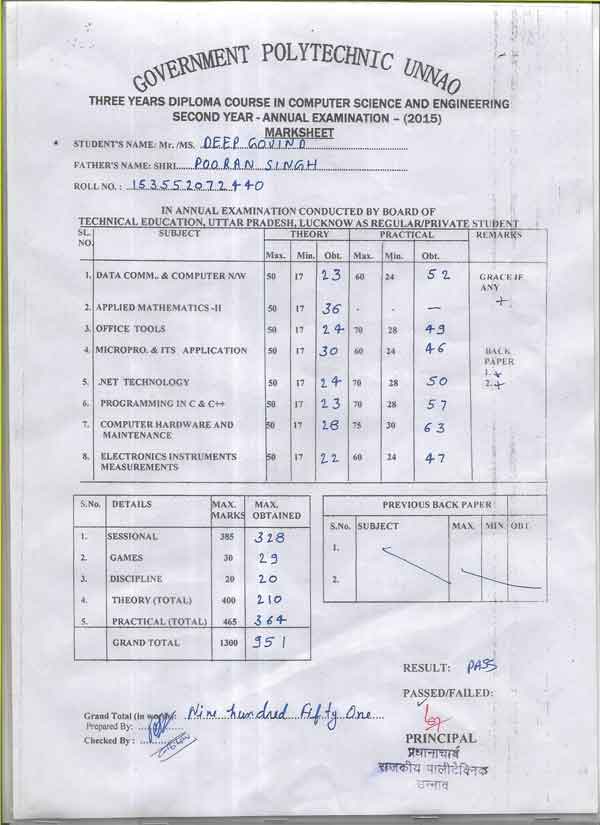 GOVERNMENT POLYTECHNIC UNNAO
THREE YEARS DIPLOMA COURSE IN COMPUTER SCIENCE AND ENGINEERING
SECOND YEAR - ANNUAL EXAMINATION – (2015)
MARKSHEET
* STUDENT'S NAME: Mr. /MS. DEEP GOVIND
FATHER'S NAME: SHRI. POORAN SINGH
ROLL NO. : 153552072440
IN ANNUAL EXAMINATION CONDUCTED BY BOARD OF
TECHNICAL EDUCATION, UTTAR PRADESH, LUCKNOW AS REGULAR/PRIVATE STUDENT
SL. NO. SUBJECT THEORY PRACTICAL REMARKS
Max. Min. Obt. Max. Min. Obt.
1. DATA COMM.. & COMPUTER N/W 50 17 23 60 24 52 GRACE IF
ANY
2. APPLIED MATHEMATICS -II 50 17 36 - - —
3. OFFICE TOOLS 50 17 24 70 28 49
4. MICROPRO. & ITS APPLICATION 50 17 30 60 24 46 BACK
PAPER
1.
5. .NET TECHNOLOGY 50 17 24 70 28 50 2.
6. PROGRAMMING IN C & C++ 50 17 23 70 28 57
7. COMPUTER HARDWARE AND 50 17 28 75 30 63
MAINTENANCE
8. ELECTRONICS INSTRUMENTS 50 17 22 60 24 47
MEASUREMENTS
S.No. DETAILS MAX. MARKS MAX. OBTAINED
1. SESSIONAL 385 328
2. GAMES 30 29
3. DISCIPLINE 20 20
4. THEORY (TOTAL) 400 210
5. PRACTICAL (TOTAL) 465 364
GRAND TOTAL 1300 951
PREVIOUS BACK PAPER
S.No. SUBJECT MAX. MIN. OBT.
1.
2.
RESULT: PASS
PASSED/FAILED:
Grand Total (in words): Nine hundred Fifty One
Prepared By:
Checked By :
PRINCIPAL
प्रधानाचार्य
राजकीय पालीटेक्निक
उन्नाव